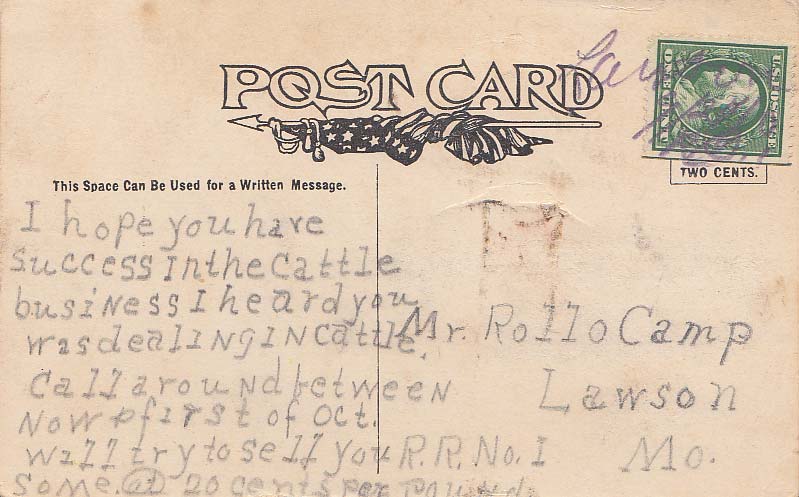 POST CARD
U.S. POSTAGE
ONE CENT
TWO CENTS.
This Space Can Be Used for a Written Message.
I hope you have
success In the cattle
business I heard you
was dealINg IN cattle.
Call around between
Now & first of Oct.
will try to sell you
some. @ 20 cents per pound.
Mr. Rollo Camp
Lawson
R.R. No. 1 Mo.